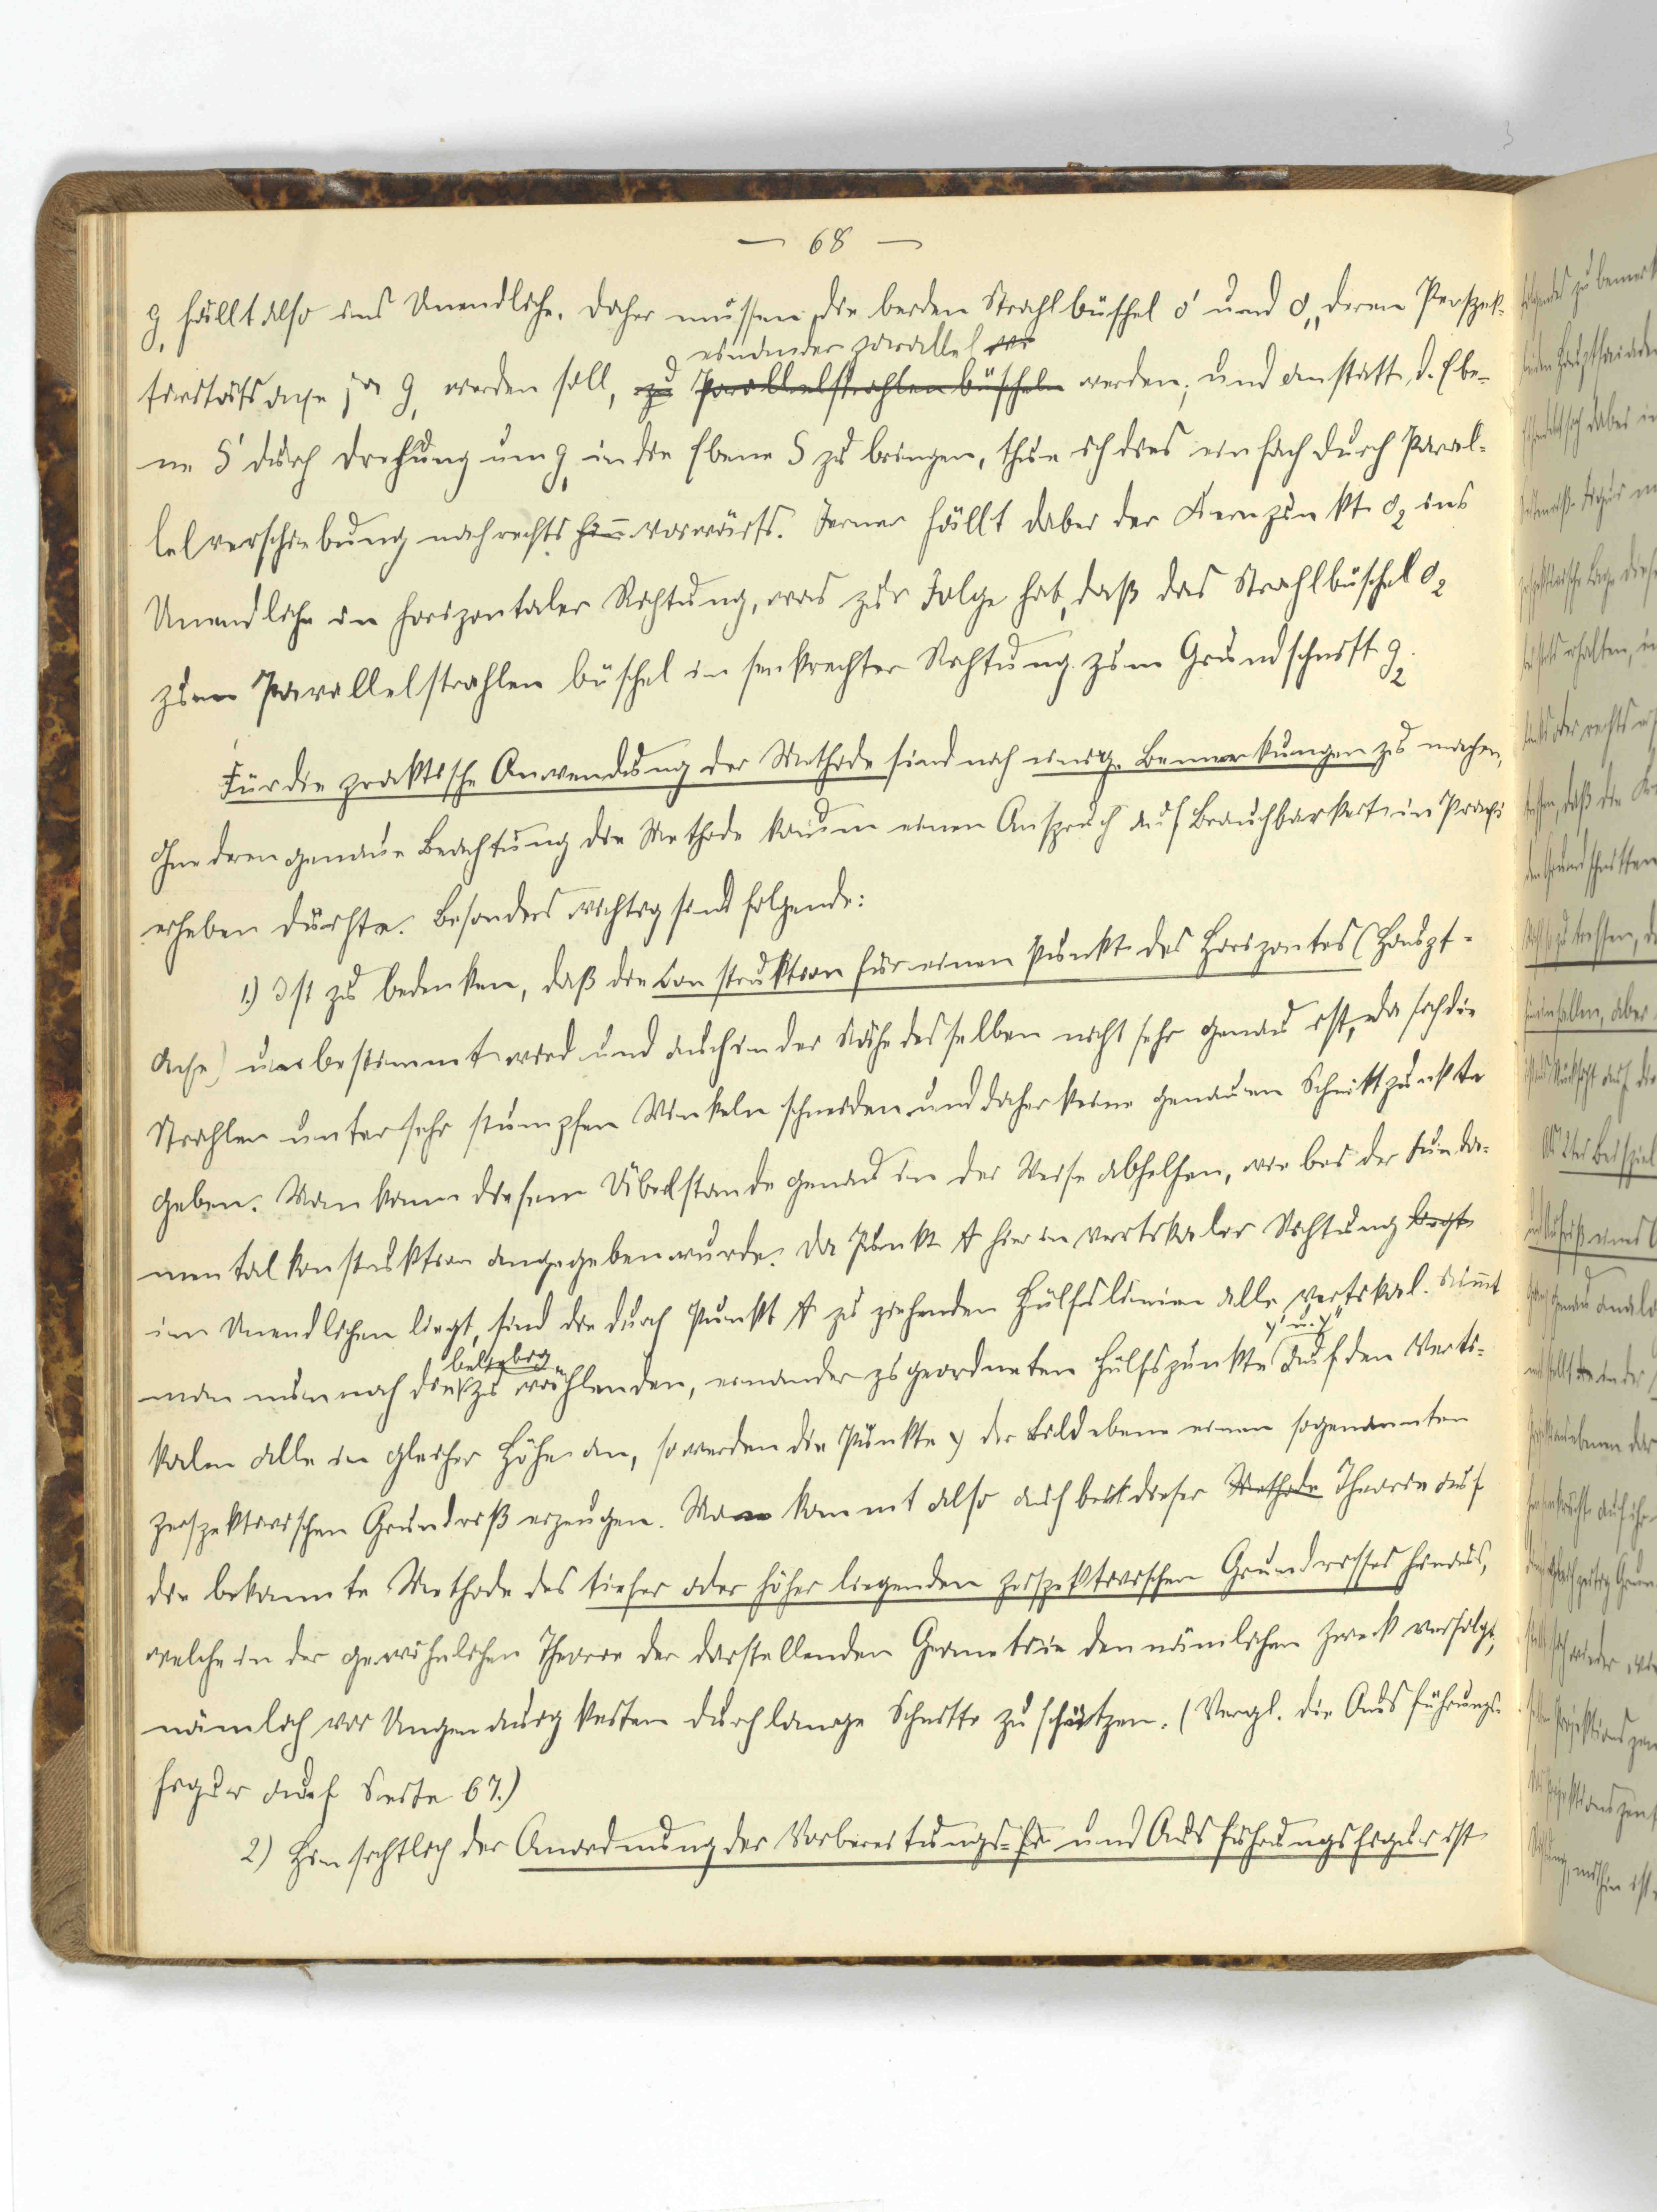 — 68 —
g, fällt also ins Unendliche. Daher müssen die beiden Strahlbüschel o' und o,, deren Perspek-
einander parallel
tivitätsaxe ja g, werden soll, zu Parallelstrahlenbüscheln werden; und anstatt d. Ebe-
ne S' durch Drehung um g, in die Ebene S zu bringen, thue ich dies einfach durch Paral-
lelverschiebung nach rechts hin vorwärts. Ferner fällt dabei der Kernpunkt o2 ins
Unendliche in horizontaler Richtung, was zur Folge hat, daß das Strahlbüschel o2
zum Parallelstrahlenbüschel in senkrechter Richtung zum Grundschnitt g2.
Für die praktische Anwendung der Methode sind noch einige Bemerkungen zu machen,
ohne deren genaue Beachtung die Methode kaum einen Anspruch auf Brauchbarkeit in Praxi
erheben dürfte. Besonders wichtig sind folgende:
1.) Ist zu bedenken, daß die Construktion für einen Punkt des Horizontes (Haupt-
axe) unbestimmt wird und auch in der Nähe desselben nicht sehr genau ist, da sich die
Strahlen unter sehr stumpfen Winkeln schneiden und daher keine genauen Schnittpunkte
geben. Man kann diesem Übelstande genau in der Weise abhelfen, wie bei der Funda-
mentalkonstruktion angegeben wurde. Da Punkt A hier in vertikaler Richtung liegt
im Unendlichen liegt, sind die durch Punkt A zu ziehenden Hülfslinien alle vertikal. Nimmt
beliebig y' u. y''
man nun noch die zu wählenden, einander zugeordneten Hülfspunkte auf den Verti-
kalen alle in gleicher Höhe an, so werden die Punkte y der Bildebene einen sogenannten
perspektivischen Grundriß erzeugen. Man kommt also auch bei dieser Methode Theorie auf
die bekannte Methode des tiefer oder höher liegenden perspektivischen Grundrisses hinaus,
welche in der gewöhnlichen Theorie der darstellenden Geometrie den nämlichen Zweck verfolgt,
nämlich vor Ungenauigkeiten durch lange Schnitte zu schützen. (Vergl. die Ausführungs-
figur auf Seite 67.)
2) Hinsichtlich der Anordnung der Vorbereitungs- und Ausführungsfigur ist